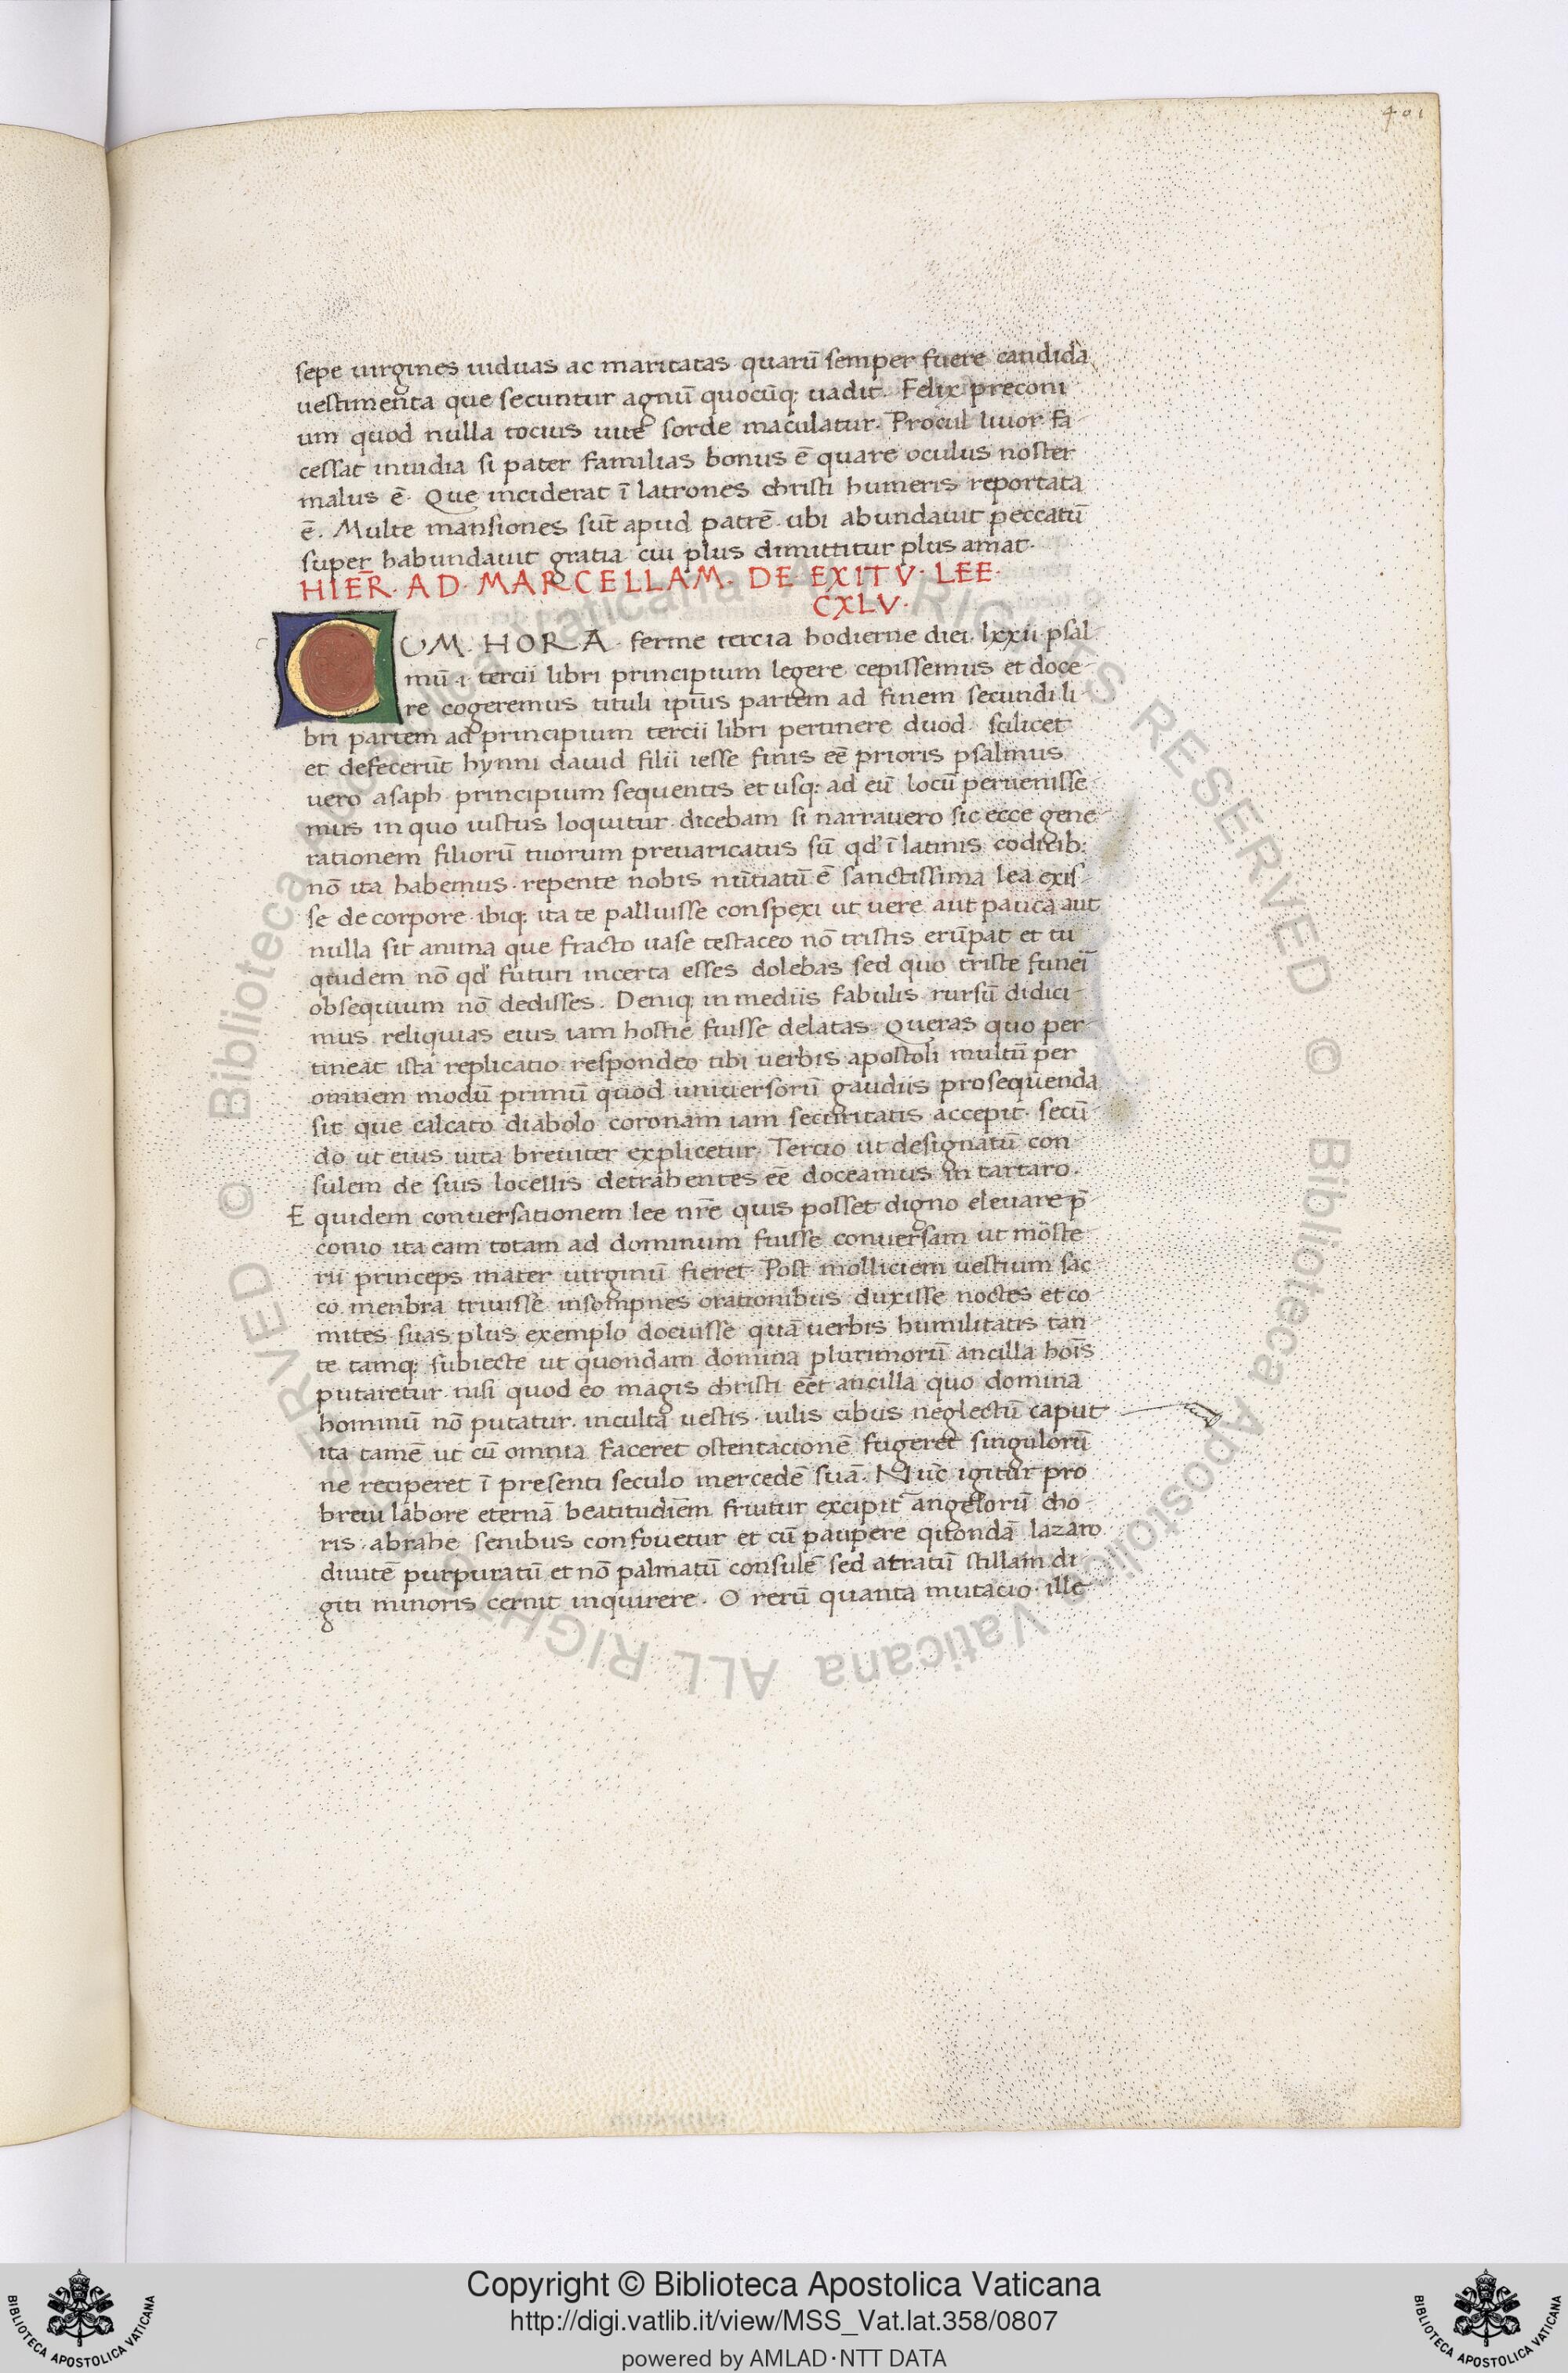 401
sepe uirgines uiduas ac maritatas quarū semper fuere candida
uestimenta que secuntur agnū quocūq; uadit. Felix preconi
um quod nulla tocius uite sorde maculatur. Procul liuor fa
cessat inuidia si pater familias bonus ē quare oculus noster
malus ē. Que inciderat ī latrones christi humeris reportata
ē. Multe mansiones sūt apud patrē ubi abundauit peccatū
super habundauit gratia cui plus dimittitur plus amat.
HIER̄. AD. MARCELLAM. DE EXITV. LEE.
CXLV.
CUM. HORA. ferme tercia hodierne diei. lxxii. psal
mū. i. tercii libri principium legere cepissemus et doce
re cogeremus tituli ipīus partem ad finem secundi li
bri partem ad principium tercii libri pertinere duod. scilicet
et defecerūt hymni dauid filii iesse finis eē prioris psalmus
uero asaph principium sequentis et usq; ad eū locū peruenisse
mus in quo iustus loquitur dicebam si narrauero sic ecce gene
rationem filiorū tuorum preuaricatus sū qd' ī latinis codicib;
nō ita habemus. repente nobis nūtiatū ē sanctissima lea exis
se de corpore. ibiq; ita te palluisse conspexi ut uere aut pauca aut
nulla sit anima que fracto uase testaceo nō tristis erūpat et tu
quidem nō qd' futuri incerta esses dolebas sed quo triste funeī
obsequium nō dedisses. Deniq; in mediis fabulis rursū didici
mus reliquias eius iam hostie fuisse delatas. Queras quo per
tineat ista replicatio respondeo tibi uerbis apostoli multū per
omnem modū primū quod uniuersorū gaudiis prosequenda
sit que calcato diabolo coronam iam securitatis accepit. secū
do ut eius uita breuiter explicetur. Tercio ut designatū con
sulem de suis locellis detrahentes eē doceamus in tartaro.
E quidem conuersationem lee nr̄e quis posset digno eleuare p̄
conio ita eam totam ad dominum fuisse conuersam ut mōste
rii princeps mater uirginū fieret. Post molliciem uestium sac
co menbra triuisse insompnes orationibus duxisse noctes et co
mites suas plus exemplo docuisse quā uerbis humilitatis tan
te tamq; subiecte ut quondam domina plurimorū ancilla hoīs
putaretur nisi quod eo magis christi eēt ancilla quo domina
hominū nō putatur. inculta uestis. uilis cibus neglectū caput
ita tamē ut cū omnia faceret ostentacionē fugeret singulorū
ne reciperet ī presenti seculo mercedē suā. Nūc igitur pro
breui labore eternā beatitudīem fruitur excipit angelorū cho
ris. abrahe senibus confouetur et cū paupere quondā lazaro
diuitē purpuratū et nō palmatū consulē sed atratū stillam di
giti minoris cernit inquirere. O rerū quanta mutacio. ille
© Biblioteca Apostolica Vaticana ALL RIGHTS RESERVED © Biblioteca Apostolica Vaticana ALL RIGHTS RESERVED
Copyright © Biblioteca Apostolica Vaticana
http://digi.vatlib.it/view/MSS_Vat.lat.358/0807
powered by AMLAD·NTT DATA
BIBLIOTECA APOSTOLICA VATICANA
BIBLIOTECA APOSTOLICA VATICANA